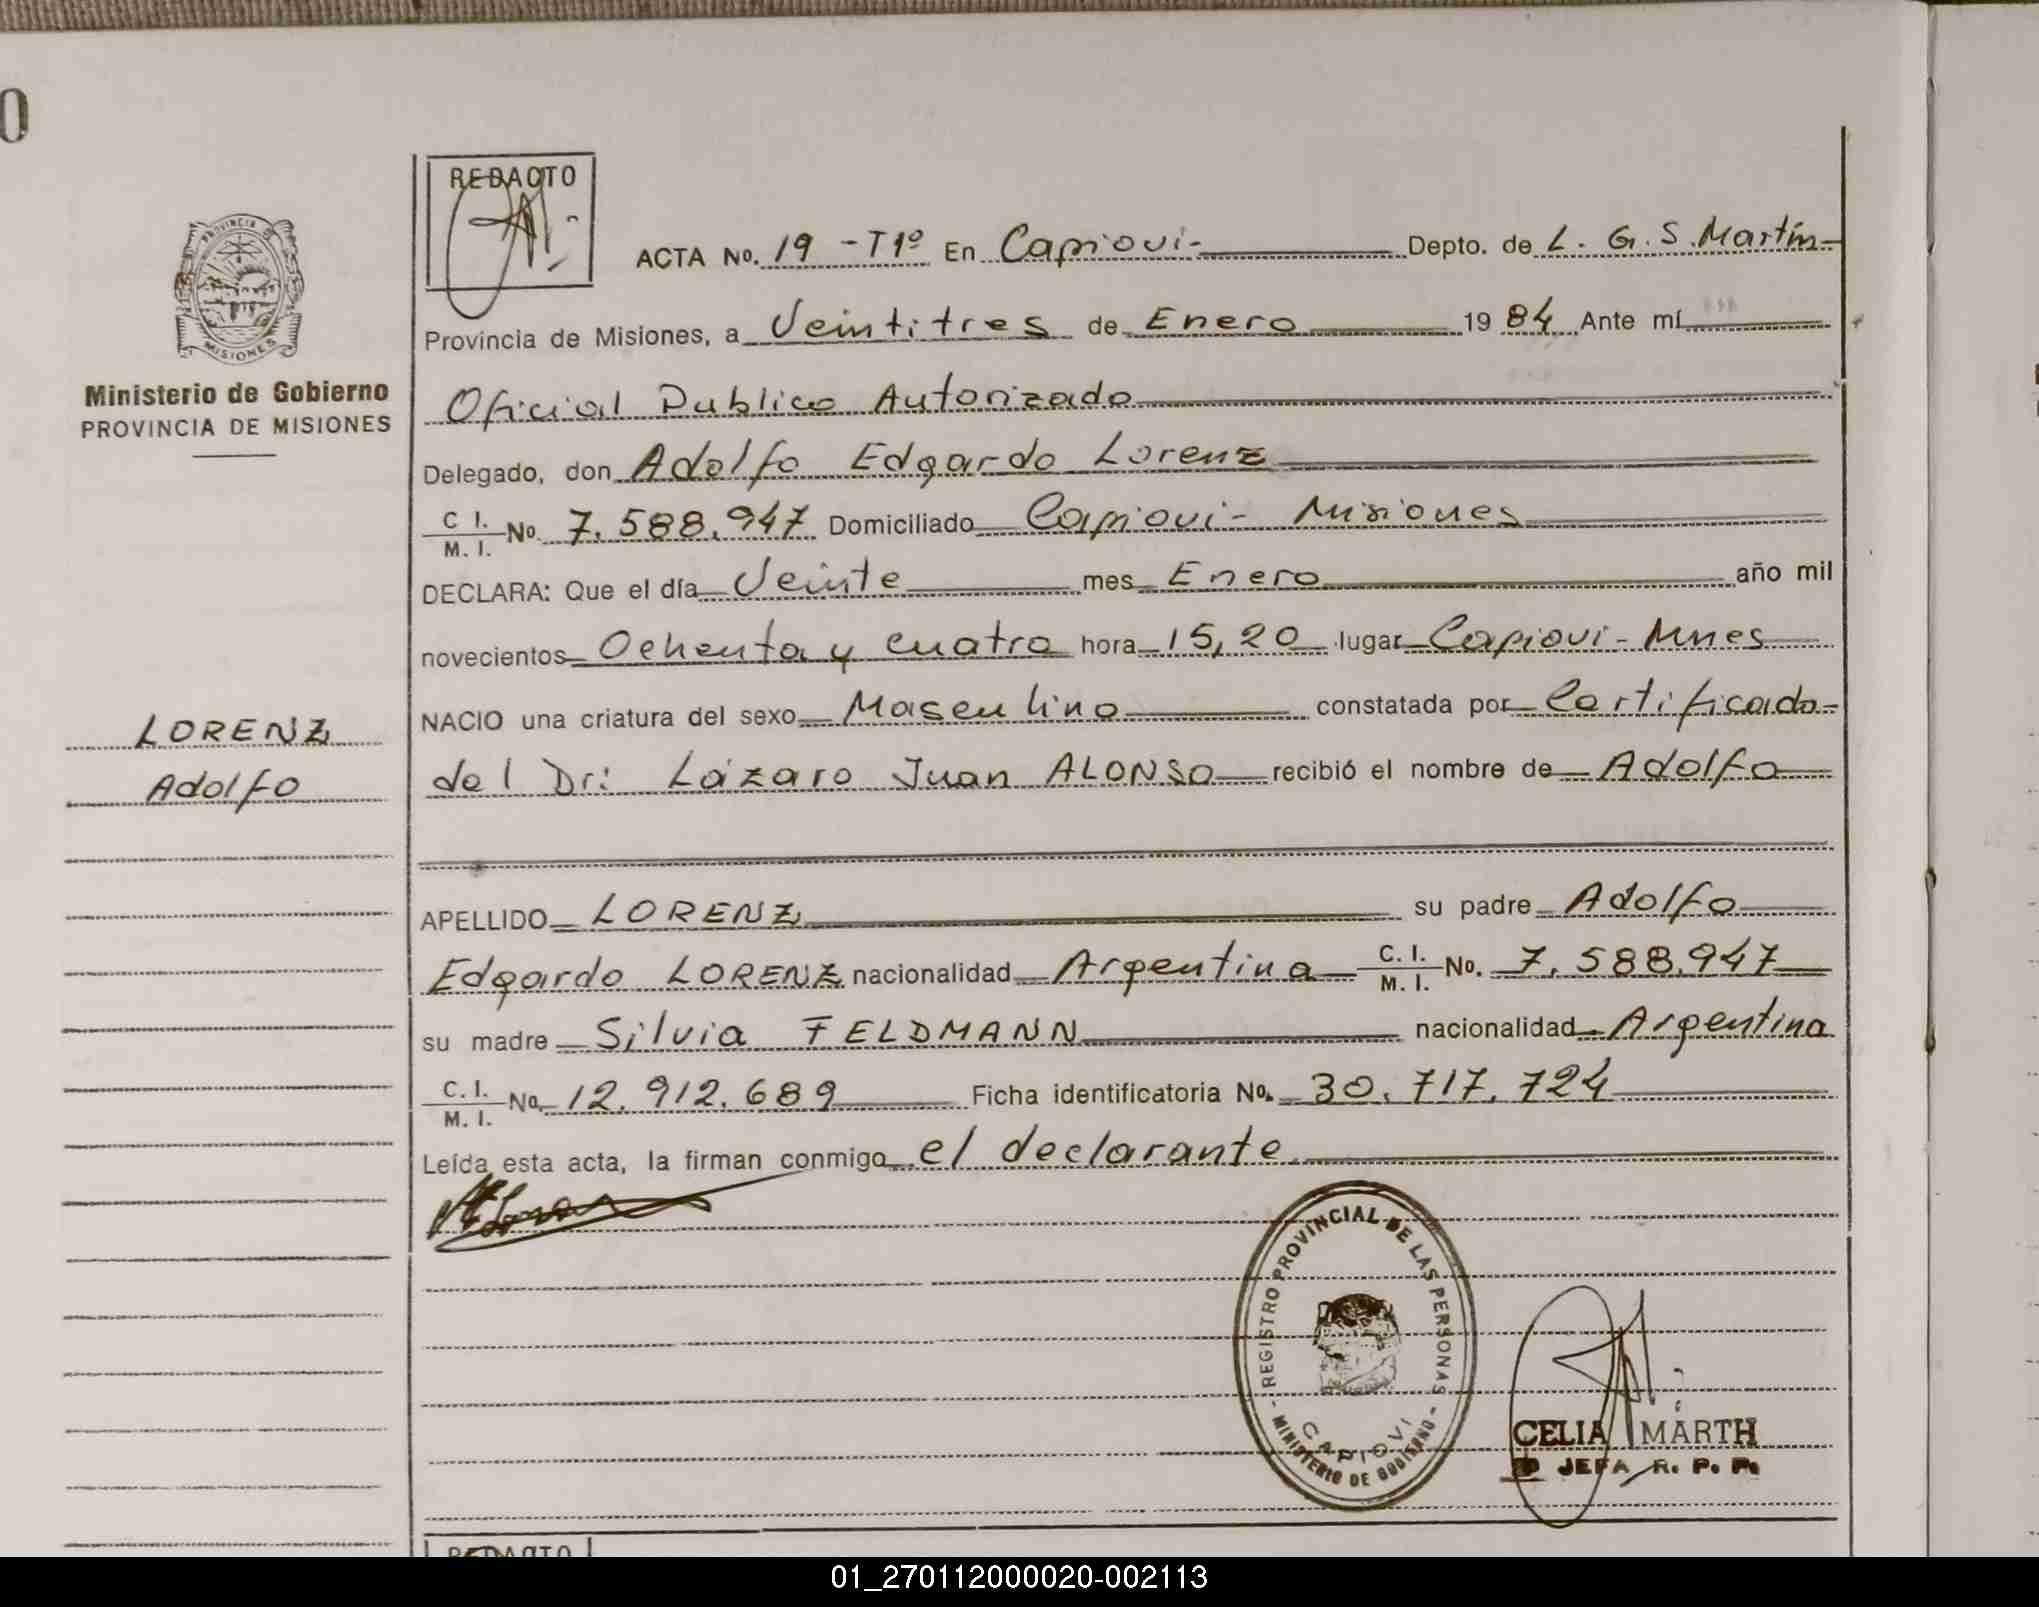 0
PROVINCIA DE
MISIONES
Ministerio de Gobierno
PROVINCIA DE MISIONES
LORENZ
Adolfo
REDACTO
ACTA No. 19 - T1º En Capiovi- Depto. de L. G. S. Martín
Provincia de Misiones, a Veintitres de Enero 1984 Ante mí
Oficial Publico Autorizado
Delegado, don Adolfo Edgardo Lorenz
C I. M. I. No. 7.588.947 Domiciliado Capiovi- Misiones
DECLARA: Que el día Veinte mes Enero año mil
novecientos Ochenta y cuatro hora 15,20 lugar Capiovi- Mnes
NACIO una criatura del sexo Masculino constatada por Certificado
del Dr: Lázaro Juan ALONSO recibió el nombre de Adolfo
APELLIDO LORENZ su padre Adolfo
Edgardo LORENZ nacionalidad Argentina C. I. M. I. No. 7.588.947
su madre Silvia FELDMANN nacionalidad Argentina
C. I. M. I. No. 12.912.689 Ficha identificatoria No. 30.717.724
Leída esta acta, la firman conmigo el declarante
- REGISTRO PROVINCIAL DE LAS PERSONAS -
CAPIOVI
MINISTERIO DE GOBIERNO
CELIA MARTH
JEFA R. P. P.
REDACTO
01_270112000020-002113